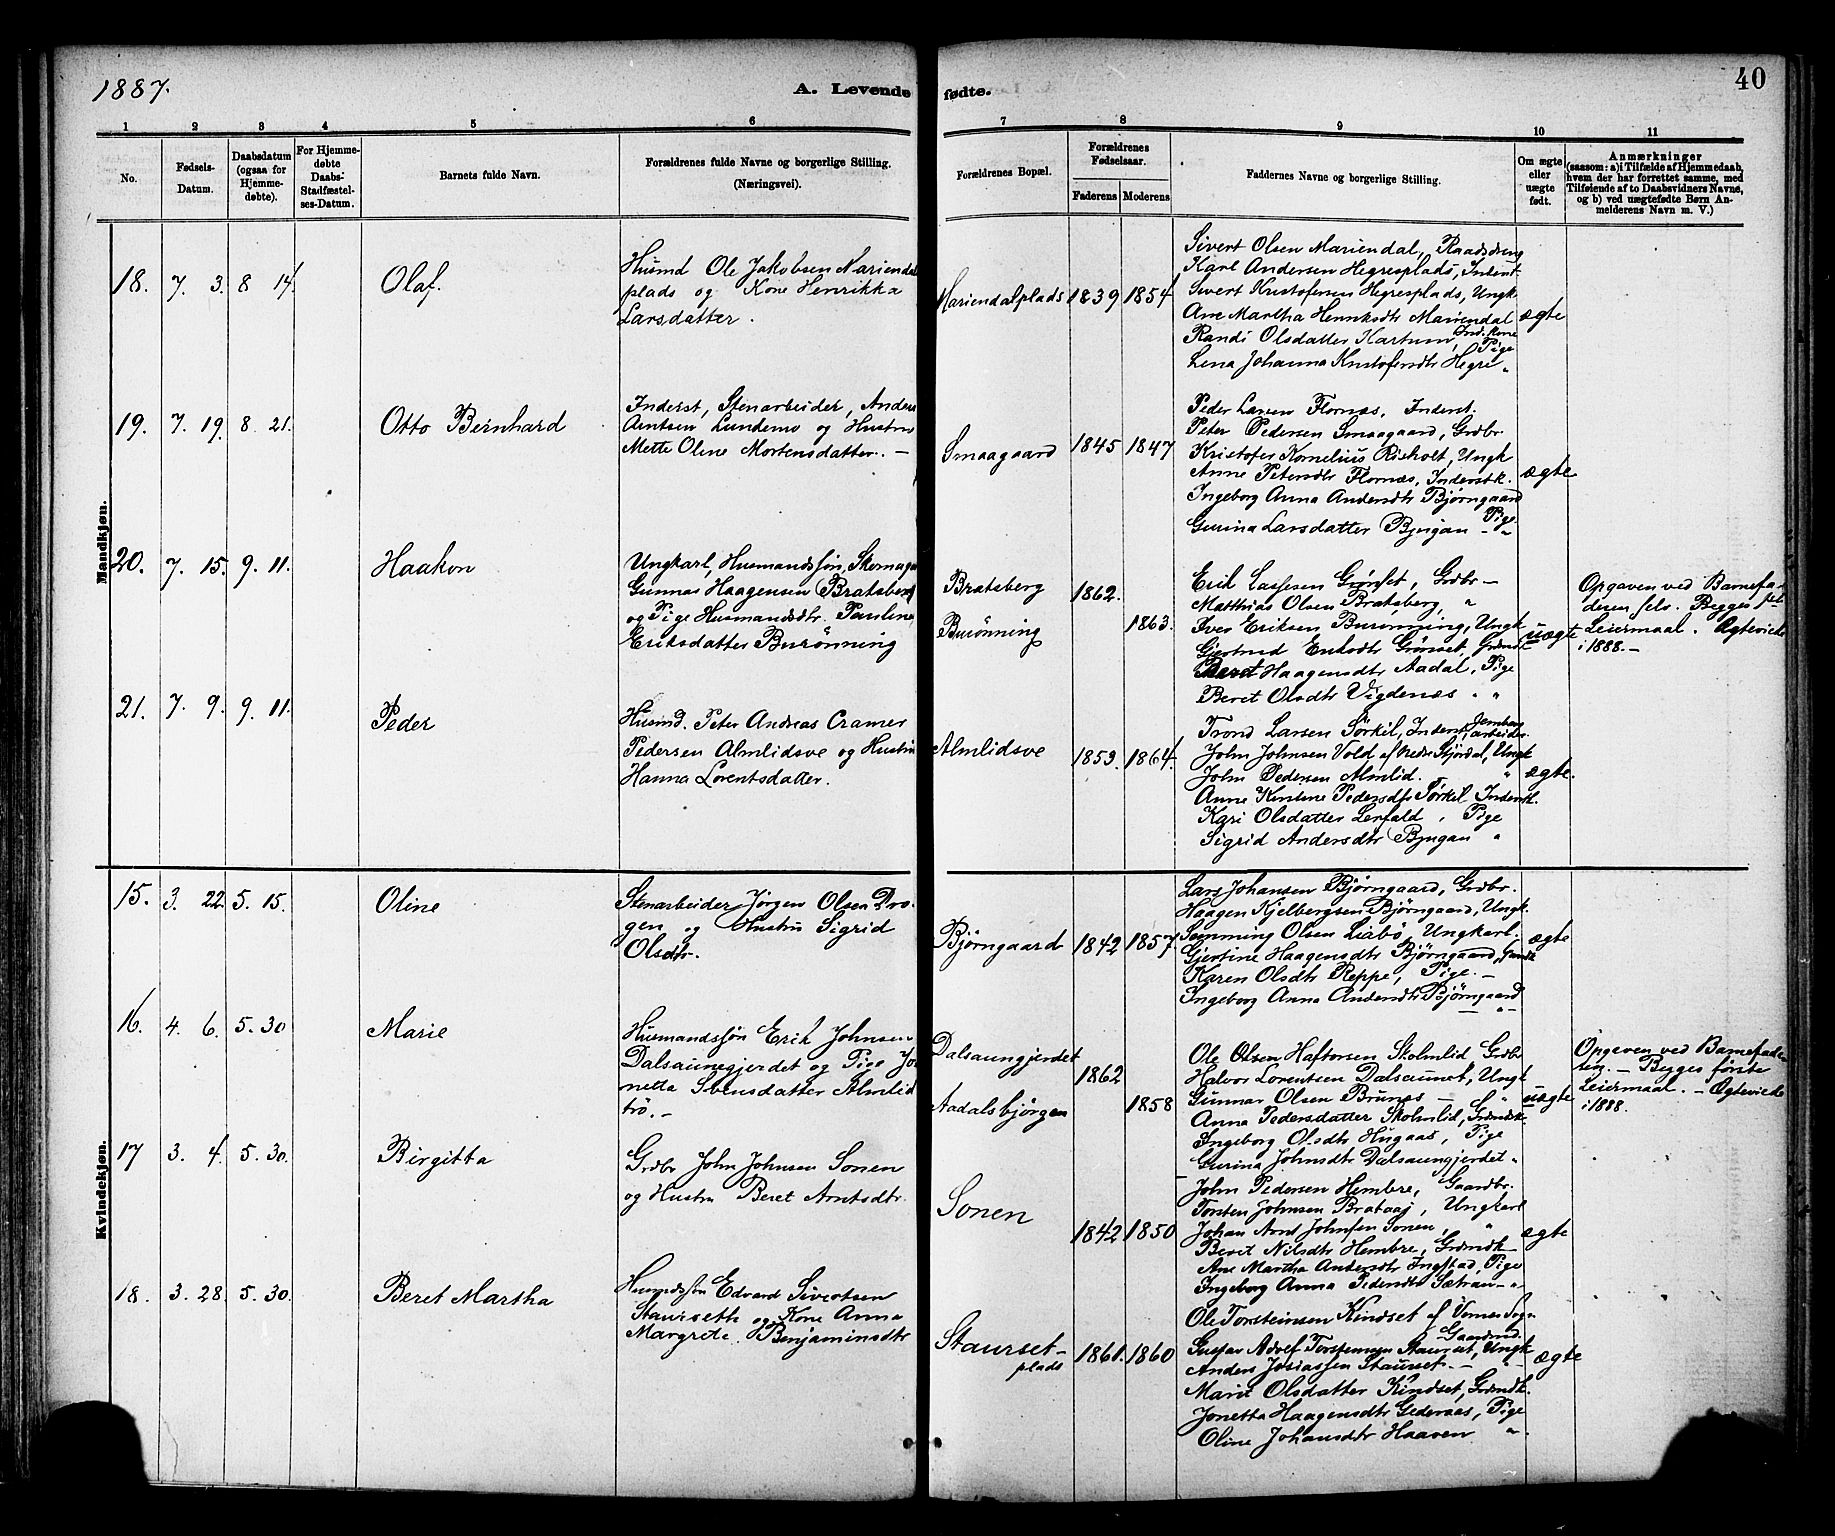 1887.
A. Levende fødte.
40
1 2 3 4 5 6 7 8 9 10 11
No.
Fødsels-
Datum.
Daabsdatum
(ogsaa for
Hjemme-
døbte).
For Hjemme-
døbte
Daabs-
Stadfæstel-
ses-Datum.
Barnets fulde Navn.
Forældrenes fulde Navne og borgerlige Stilling.
(Næringsvei).
Forældrenes Bopæl.
Forældrenes
Fødselsaar.
Faderens Moderens
Faddernes Navne og borgerlige Stilling.
Om ægte
eller
uægte
født.
Anmærkninger
(saasom: a) i Tilfælde af Hjemmedaab,
hvem der har forrettet samme, med
Tilføiende af to Daabsvidners Navne,
og b) ved uægtefødte Børn An-
melderens Navn m. V.)
Mandkjøn.
18. 7. 3. 8 14.
Olaf.
Husmd Ole Jakobsen Mariendal
plads og Kone Henrikka
Larsdatter.
Mariendalplads 1839 1854
Sivert Olsen Mariendal, Raadsdreng
Karl Andersen Hegresplads, Inderst.
Sivert Kristofersen Hegresplads, Ungk
Ane Martha Henriksdtr Mariendal
Randi Olsdatter Kartum, Ind. kone
Pige
Lena Johanna Kristofersdtr Hegre "
ægte
19. 7. 19. 8 21.
Otto Bernhard
Inderst, Stenarbeider, Anders
Arntsen Lundemo og Hustru
Mette Oline Mortensdatter. —
Smaagaard 1845 1847
Peder Larsen Flornæs, Inderst.
Peter Pedersen Smaagaard, Grdbr.
Kristofer Kornelius Risholt, Ungk
Anne Petersdtr Flornæs, Inderstk.
Ingeborg Anna Andersdtr Bjørngaard
Pige
Gurina Larsdatter Bjugan — "
ægte
20. 7. 15. 9. 11.
Haakon
Ungkarl, Husmandssøn, Skomager
Gunnar Haagensen Bratsberg
og Pige Husmandsdtr. Pauline
Eriksdatter Burønning
Bratsberg 1862.
Burønning 1863.
Erik Lassesen Grønset, Grdbr —
Matthias Olsen Bratsberg, "
Iver Eriksen Burønning, Ungk
Gjertrud Eriksdtr Grønset, Grdmdk
Beret Haagensdtr Aadal, Pige
Beret Olsdtr Vigdenæs " "
uægte
Opgaven ved Barnefa-
deren selv. Begges 1ste
Leiermaal. Ægteviede
i 1888. —
21. 7. 9. 9. 11.
Peder
Husmd. Peter Andreas Cramer
Pedersen Almlidsve og Hustru
Hanna Lorentsdatter.
Almlidsve 1853. 1864.
Trond Larsen Sørkil, Inderst, Jernbane
arbeider
John Johnsen Vold af Nedre Stjørdal, Ungk
John Pedersen Almlid. "
Anne Kirstine Pedersdtr Sørkil Inderstk.
Kari Olsdatter Lerfald, Pige
Sigrid Andersdtr Bjugan "
ægte.
Kvindekjøn.
15. 3. 22. 5. 15.
Oline
Stenarbeider Jørgen Olsen Dro-
gen og Hustru Sigrid
Olsdtr.
Bjørngaard 1842 1857.
Lars Johansen Bjørngaard, Grdbr.
Haagen Kjelbergsen Bjørngaard, Ungk.
Semming Olsen Liabø, Ungkarl,
Gjertine Haagensdtr Bjørngaard, Grmdk
Karen Olsdtr Reppe, Pige. —
Ingeborg Anna Andersdtr Bjørngaard
— " —
ægte
16. 4. 6. 5. 30
Marie
Husmandssøn Erik Johnsen
Dalsaunegjerdet og Pige Jo-
netta Svensdatter Almlid
trø. —
Dalsaungjerdet 1862
Aadalsbjørgen 1858
Ole Olsen Haftorsen Skolmlid Grdbr
Halvor Lorentsen Dalsaunet, Ungk
Gunnar Olsen Brunæs — "
Anna Pedersdatter Skolmlid, Grdmdk.
Ingeborg Olsdtr Hugaas, Pige
Gurina Johnsdtr Dalsaungjerdet "
uægte
Opgaven ved Barnefade-
ren. — Begges første
Leiermaal. — Ægteviede
i 1888.
17 3. 4. 5. 30.
Birgitta
Grdbr John Johnsen Sonen
og Hustru Beret Arntsdtr.
Sonen 1842 1850
John Pedersen Hembre, Gaardbr.
Torsten Johnsen Brataaj, Ungkarl
Johan Arnt Johnsen Sonen, "
Berit Nilsdtr Hembre, Grdmdk —
Ane Martha Andersdtr Ingstad, Pige
Ingeborg Anna Pedersdtr Sætran — " —
ægte
18. 3. 28. 5. 30.
Beret Martha
Husmdssøn Edvard Sivertsen
Staurseth og Kone Anna
Margrete Benjaminsdtr
Staurset-
plads 1861. 1860
Ole Torsteinsen Kindset af Vornes Sogn
Gaardmd.
Gustav Adolf Torstensen Staurset, Ungk
Anders Josiassen Staurset. — "
Marie Olsdatter Kindset, Grdmdk.
Jonetta Haagensdtr Gederaas, Pige
Oline Johansdtr Haaven "
ægte